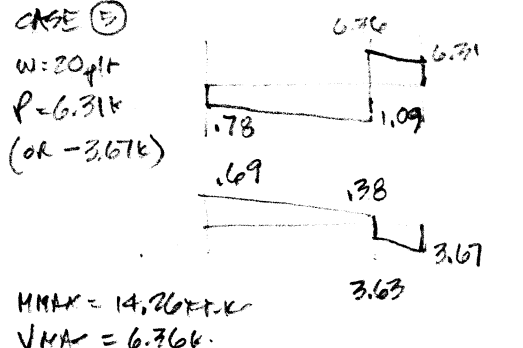 CASE 5
W=20plf
P=6.31k
(OR -3.67k)
6.36
6.31
.78
1.09
.69
.38
3.67
3.63
MMAX = 14.26 FT.K
VMAX = 6.36k.